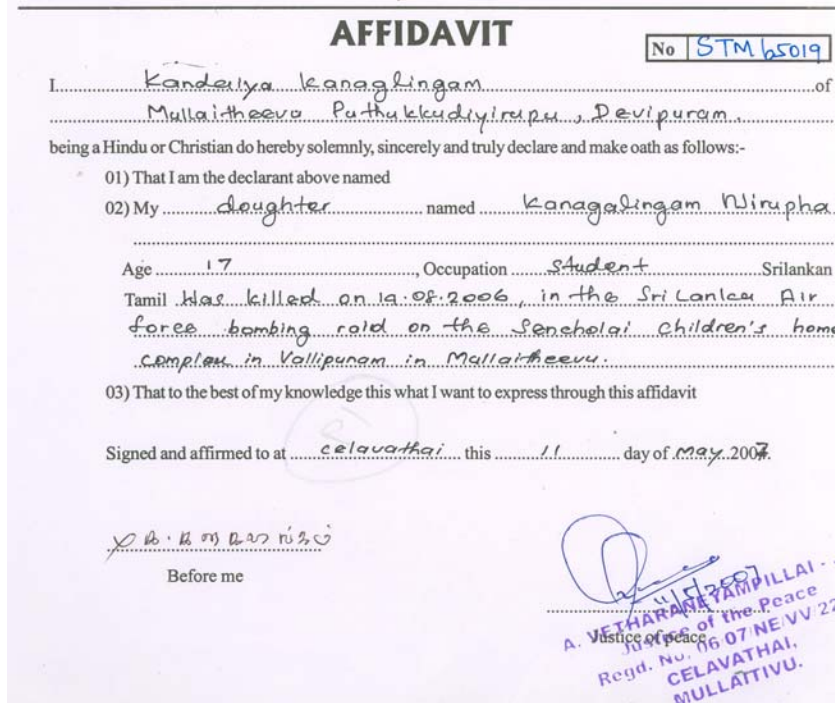 AFFIDAVIT
No STM 65019
I Kandaiya Kanaglingam of
Mullaitheevu Puthukkudiyirupu, Devipuram.
being a Hindu or Christian do hereby solemnly, sincerely and truly declare and make oath as follows:-
01) That I am the declarant above named
02) My doughter named Kanagalingam Nirupha
Age 17, Occupation Student Srilankan
Tamil Was killed on 14.08.2006, in the Sri Lanka Air
force bombing raid on the Sencholai children's home
complex in Vallipunam in Mullaitheevu.
03) That to the best of my knowledge this what I want to express through this affidavit
Signed and affirmed to at celavathai this 11 day of May 2007.
Before me
11/5/2007
Justice of peace
A. VETHARANEYAMPILLAI
Justice of the Peace
Regd. No. 06 07/NE/VV/22
CELAVATHAI,
MULLAITIVU.